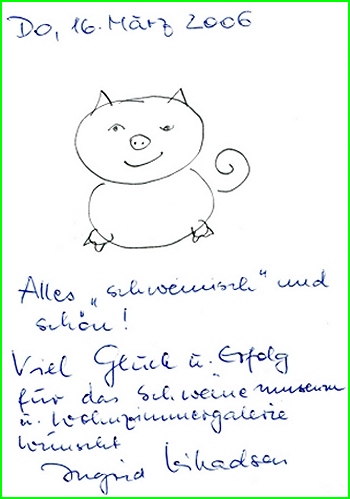 Do, 16. März 2006
Alles „schweinisch“ und
schön!
Viel Glück u. Erfolg
für das Schweinemuseum
u. Wohnzimmergalerie
wünscht
Ingrid